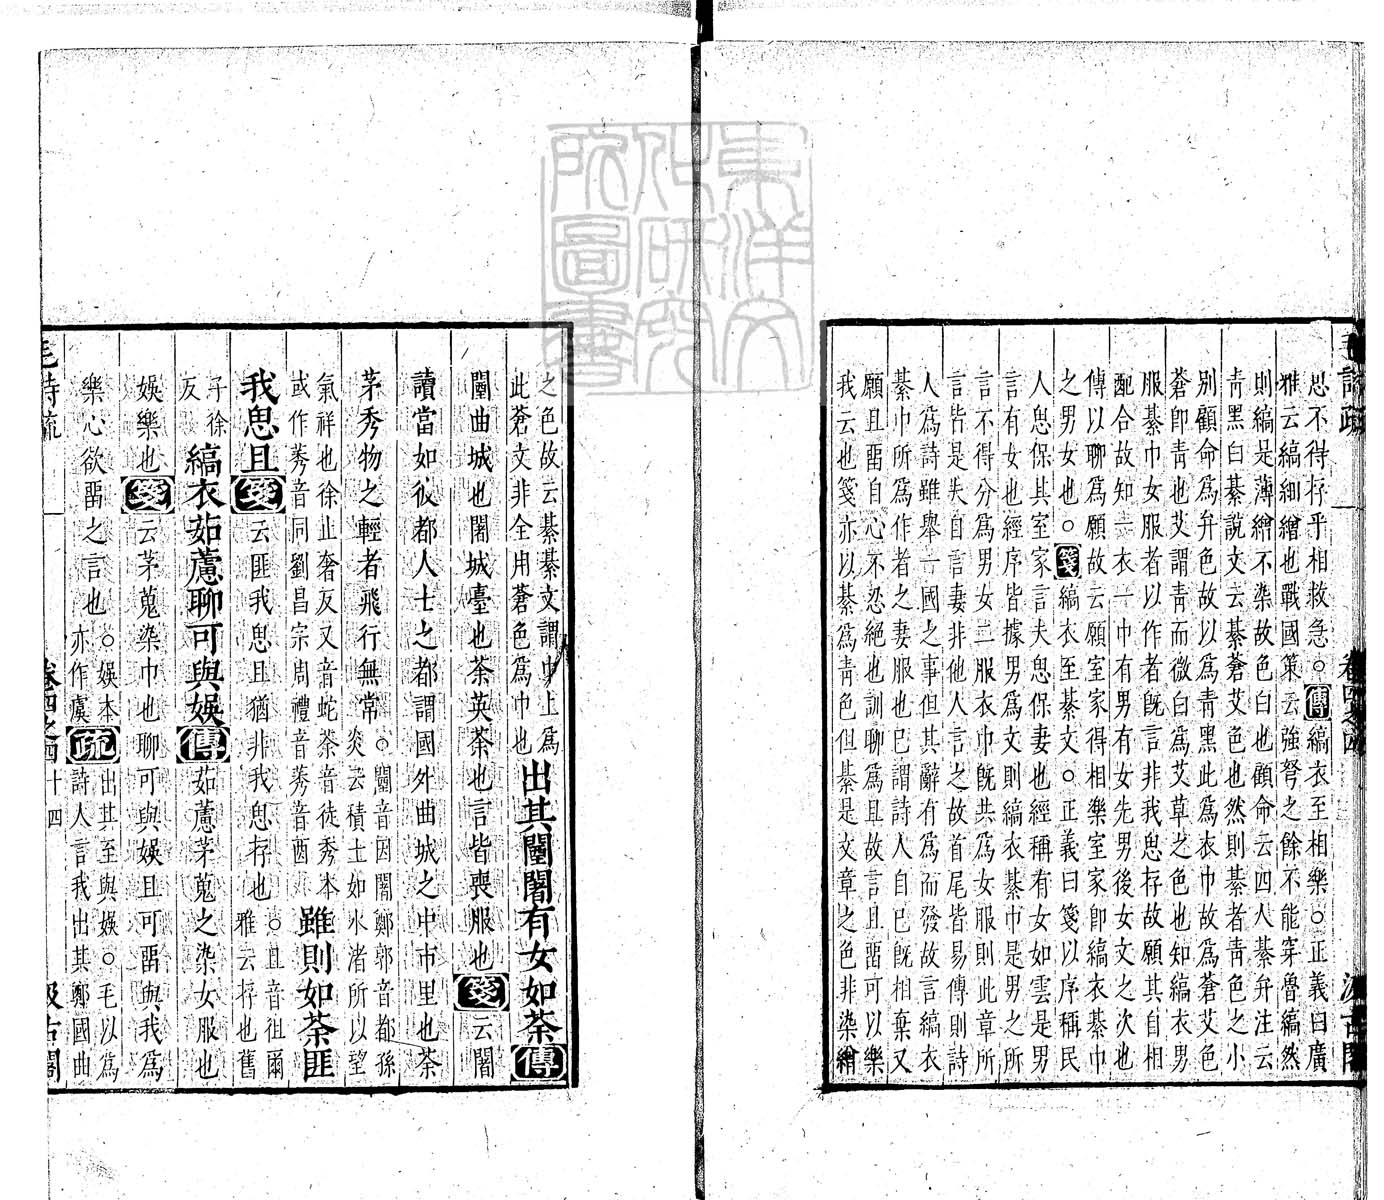 毛詩疏 卷四之四 汲古閣
思不得存乎相救急○傳縞衣至相樂○正義曰廣
雅云縞細繒也戰國策云強弩之餘不能穿魯縞然
則縞是薄繒不染故色白也顧命云四人綦弁注云
靑黑曰綦說文云綦蒼艾色也然則綦者靑色之小
別顧命爲弁色故以爲靑黑此爲衣巾故爲蒼艾色
蒼卽靑也艾謂靑而微白爲艾草之色也知縞衣男
服綦巾女服者以作者旣言非我思存故願其自相
配合故知一衣一巾有男有女先男後女文之次也
傳以聊爲願故云願室家得相樂室家卽縞衣綦巾
之男女也○箋縞衣至綦文○正義曰箋以序稱民
人思保其室家言夫思保妻也經稱有女如雲是男
言有女也經序皆據男爲文則縞衣綦巾是男之所
言不得分爲男女二服衣巾旣共爲女服則此章所
言皆是失自言妻非他人言之故首尾皆易傳則詩
人爲詩雖舉一國之事但其辭有爲而發故言縞衣
綦巾所爲作者之妻服也已謂詩人自已旣相棄又
願且畱自心不忍絕也訓聊爲且故言且畱可以樂
我云也箋亦以綦爲靑色但綦是文章之色非染繒
之色故云綦綦文謂巾上爲
此蒼文非全用蒼色爲巾也
出其闉闍有女如荼傳
闉曲城也闍城臺也荼英荼也言皆喪服也箋云闍
讀當如彼都人士之都謂國外曲城之中市里也荼
茅秀物之輕者飛行無常
○闉音因闍鄭郭音都孫
炎云積土如水渚所以望
氣祥也徐止奢反又音蛇荼音徒秀本
或作莠音同劉昌宗周禮音莠音酉
雖則如荼匪
我思且箋云匪我思且猶非我思存也
○且音徂爾
雅云存也舊
子徐
友
縞衣茹藘聊可與娛傳茹藘茅蒐之染女服也
娛樂也箋云茅蒐染巾也聊可與娛且可畱與我爲
樂心欲畱之言也
○娛本
亦作虞
疏
出其至與娛○毛以爲
詩人言我出其鄭國曲
毛詩疏 卷四之四 十四 汲古閣
東洋文化研究院圖書